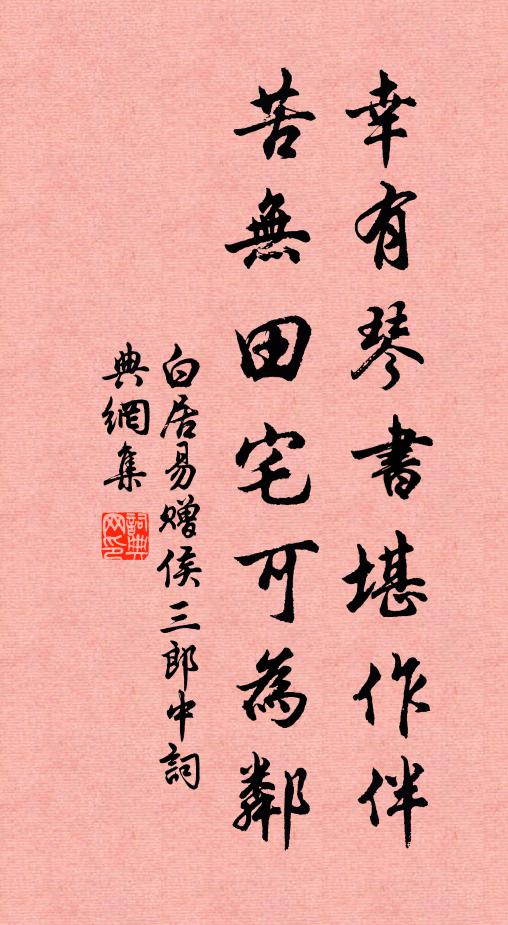 幸有琴書堪作伴
苦無田宅可為鄰
白居易贈侯三郎中詞
典網集
詞典
网印